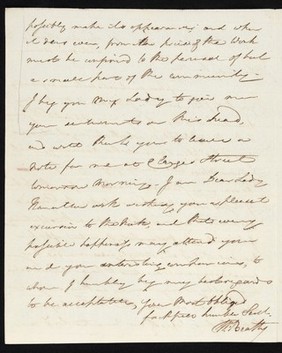 possibly make its appearance; and when
it does even, from the price of the Work
must be confined to the perusal of but
a small part of the community.—
I beg you My Lady to give me
your sentiments on this head,
and will thank you to leave a
note for me at Clarges Street
tomorrow Morning. I am Dear Lady
Hamilton with wishing you a pleasant
excursion to the Park, and that every
possible happiness may attend you
and your
to whom I humbly beg my best regards
to be acceptable, Your Most Obliged
humble Servt.
Wm Beatty